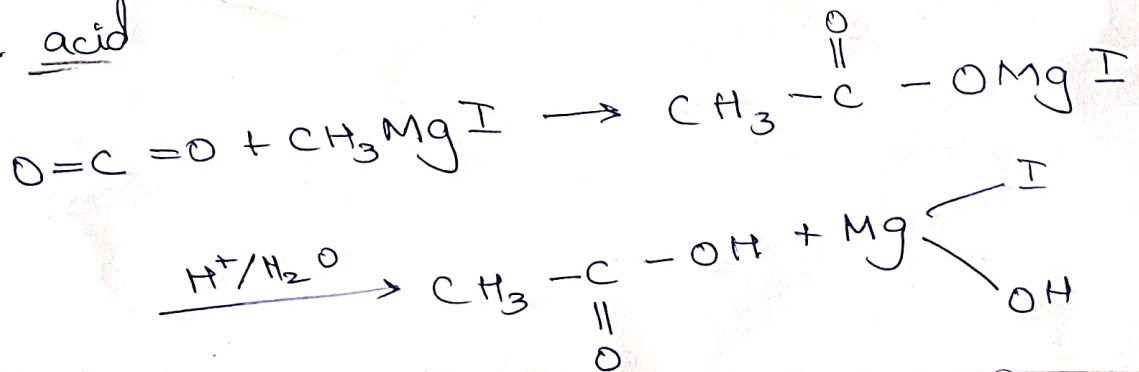 acid
O=C=O + CH₃MgI → CH₃-C(=O)-OMgI
H⁺/H₂O → CH₃-C(=O)-OH + Mg(I)(OH)